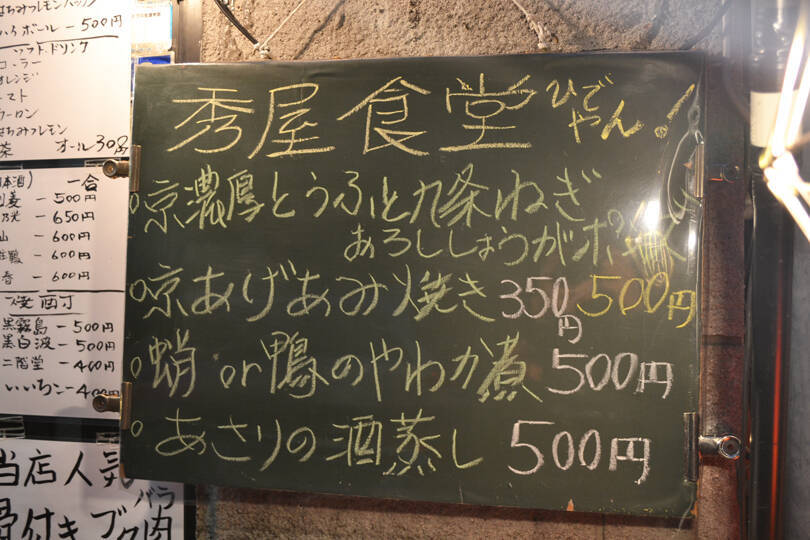 ハイボール-500円
ソフトドリンク
コーラー
オレンジ
トマト
ウーロン
はちみつレモン
茶 オール300
一合
-500円
-650円
山-600円
-600円
香-600円
黒霧島-500円
黒白波-500円
二階堂-400円
いいちこ-400
当店人気
骨付きブタバラ肉
秀屋食堂 ひでやん!
京濃厚とうふと九条ねぎ
おろししょうがポン
500円
京あげあみ焼き 350円
蛸or鴨のやわか煮 500円
あさりの酒蒸し 500円